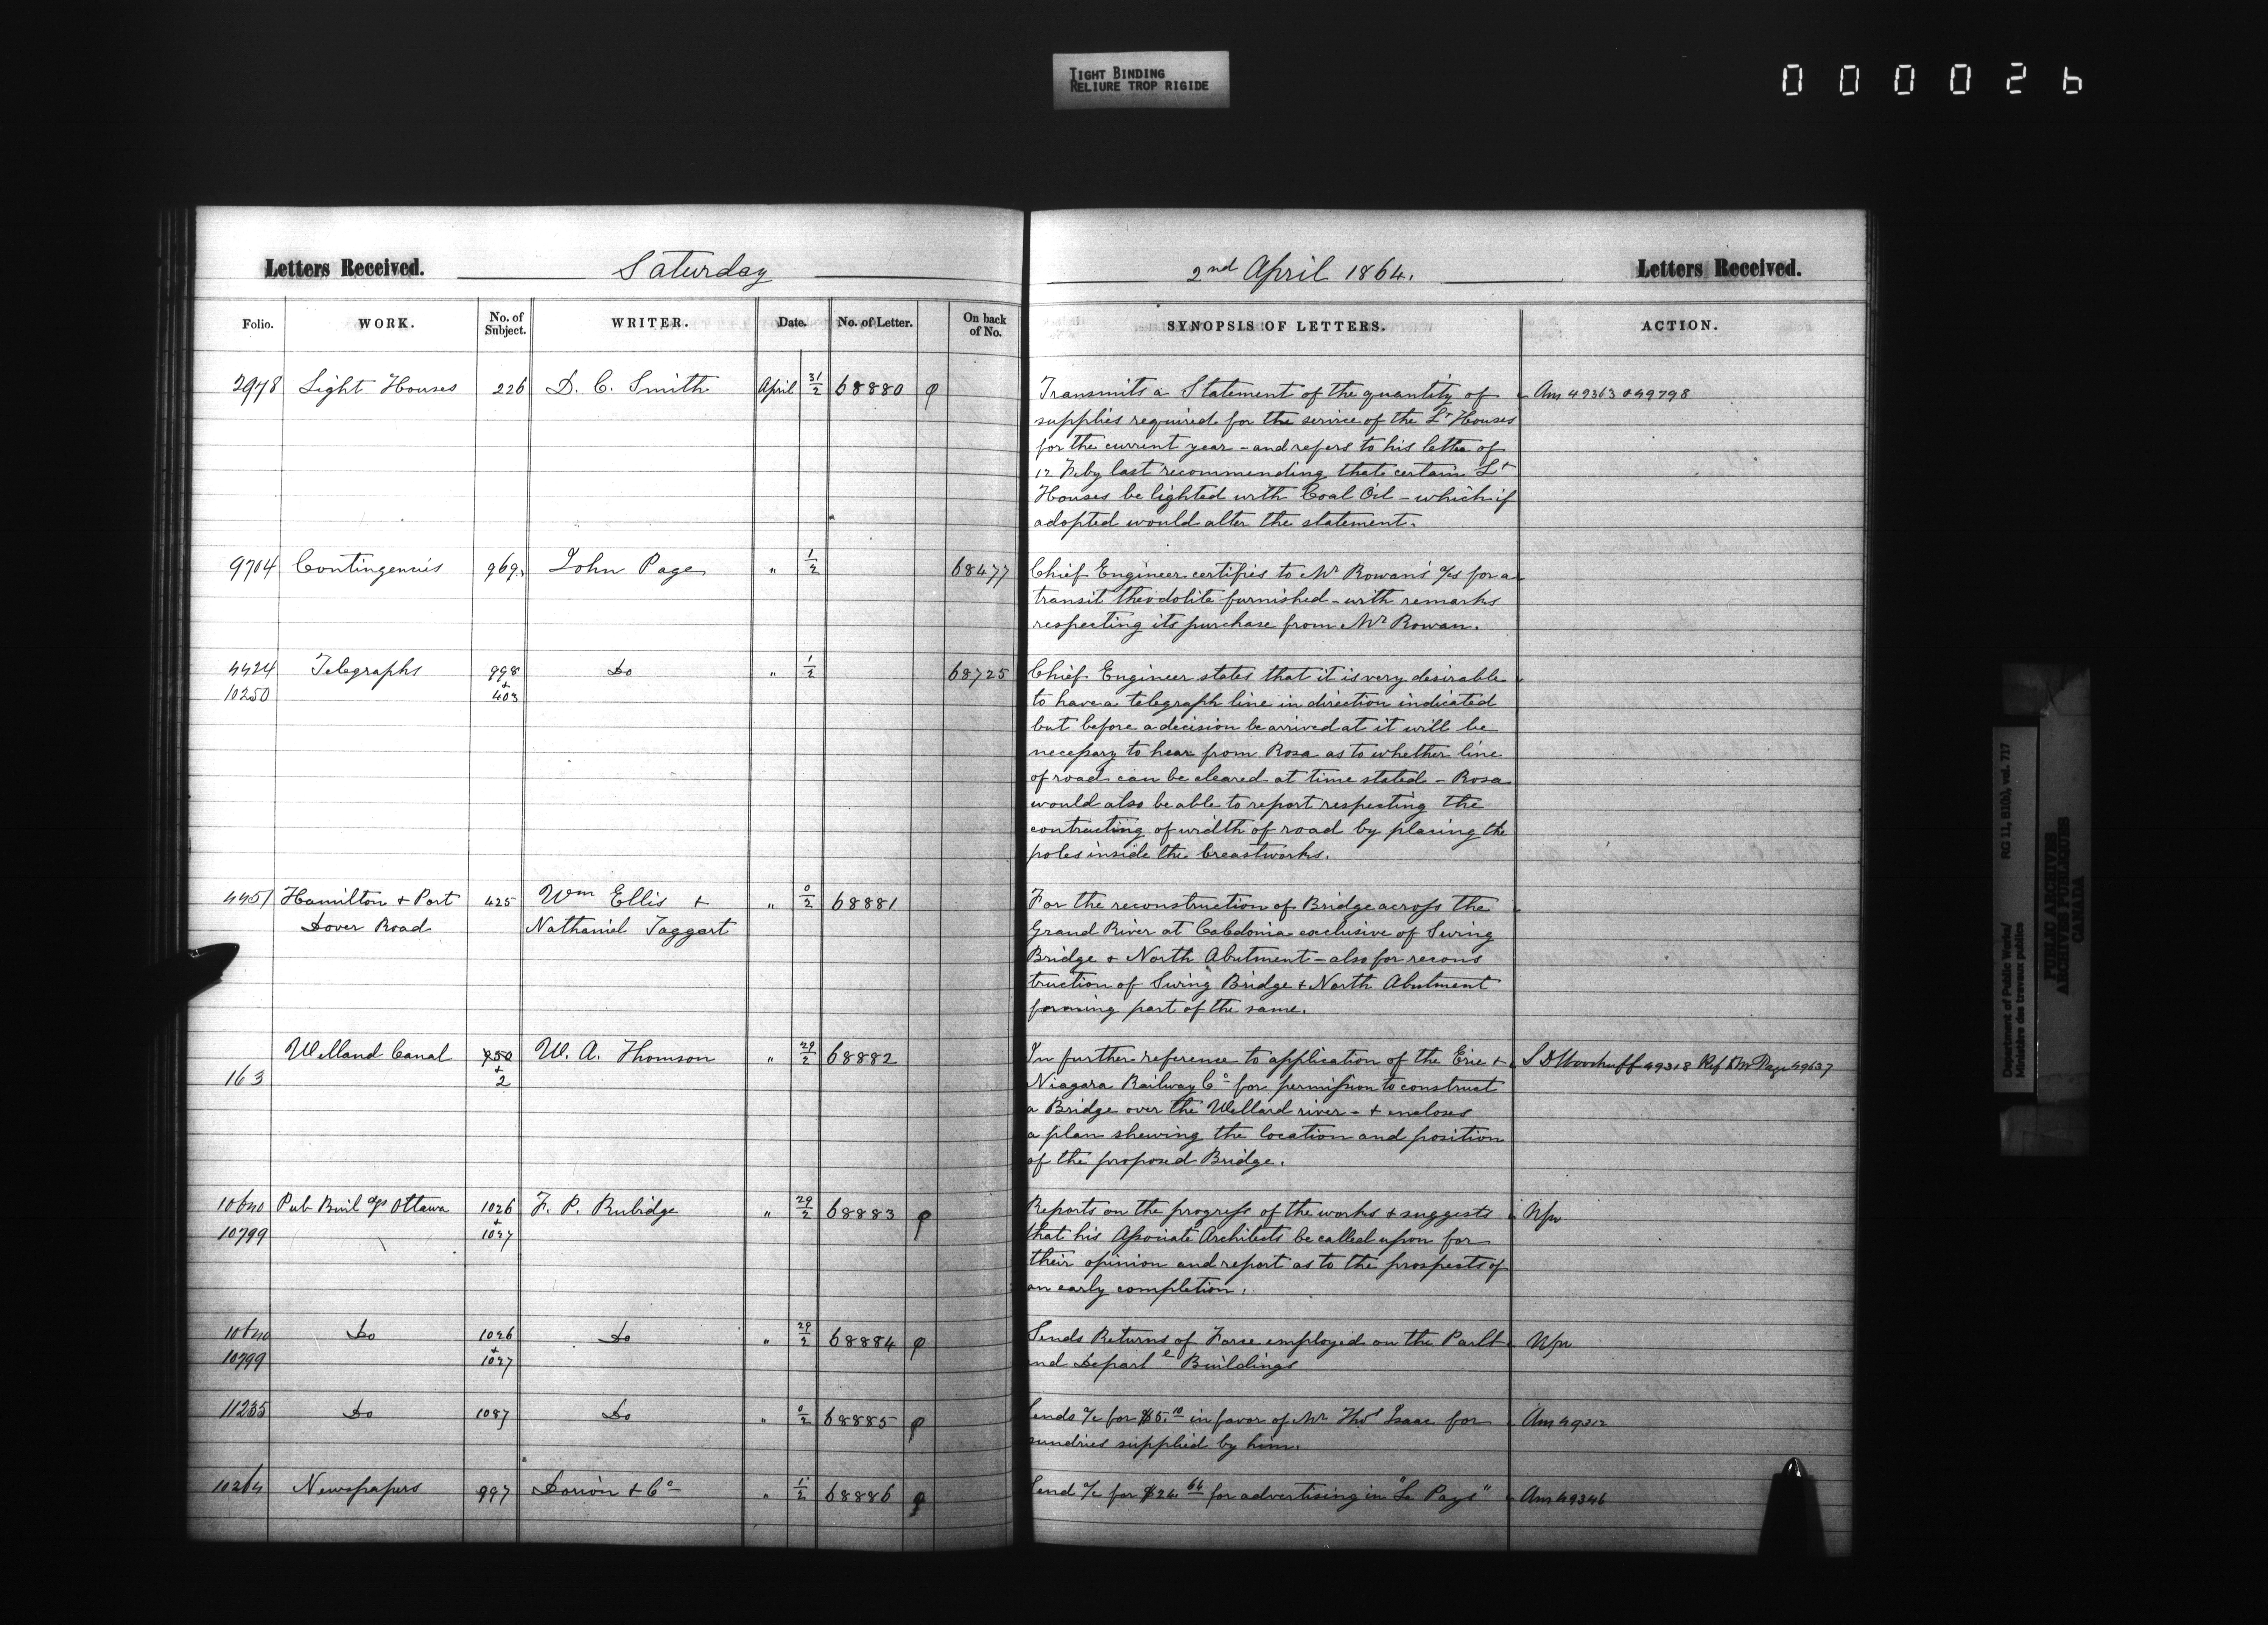 TIGHT BINDING
RELIURE TROP RIGIDE
000026
Letters Received. Saturday
Folio. WORK. No. of Subject. WRITER. Date. No. of Letter. On back of No.
2978 Light Houses 226 D. C. Smith April 31/2 68880
9704 Contingencies 969 John Page " 1/2 68477
4424 Telegraphs 998 Do " 1/2 68725
10250 + 403
4451 Hamilton + Port 425 Wm Ellis + " 0/2 68881
Dover Road Nathaniel Taggart
Welland Canal 950 W. A. Thomson " 29/2 68882
163 + 2
10640 Pub Buildgs Ottawa 1026 F. P. Rubidge " 29/2 68883
10799 + 1047
10640 Do 1026 Do " 29/2 68884
10799 + 1047
11235 Do 1087 Do " 0/2 68885
10264 Newspapers 997 Dorion + Co " 1/2 68886
2nd April 1864. Letters Received.
SYNOPSIS OF LETTERS. ACTION.
Transmits a Statement of the quantity of Ans 49363 & 49798
supplies required for the service of the Lt Houses
for the current year - and refers to his letter of
12 Feby last recommending that certain Lt
Houses be lighted with Coal Oil - which if
adopted would alter the statement.
Chief Engineer certifies to Mr Rowan's a/c for a
transit theodolite furnished - with remarks
respecting its purchase from Mr Rowan.
Chief Engineer states that it is very desirable
to have a telegraph line in direction indicated
but before a decision be arrived at it will be
necessary to hear from Rosa as to whether line
of road can be cleared at time stated - Rosa
would also be able to report respecting the
contracting of width of road by placing the
poles inside the breastworks.
For the reconstruction of Bridge across the
Grand River at Caledonia exclusive of Swing
Bridge + North Abutment - also for recons
truction of Swing Bridge + North Abutment
forming part of the same.
In further reference to application of the Erie + S D Woodruff 49318 Ref to Mr Page 49637
Niagara Railway Co for permission to construct
a Bridge over the Welland river - + encloses
a plan shewing the location and position
of the proposed Bridge.
Reports on the progress of the works + suggests
that his Associate Architects be called upon for
their opinion and report as to the prospects of
an early completion.
Sends Returns of Force employed on the Parlt
and Depart e Buildings
Sends a/c for $5.10 in favor of Mr Thos Isaac for Ans 49312
sundries supplied by him.
Send a/c for $24.64 for advertising in "Le Pays" Ans 49346
Department of Public Works/ RG 11, B1(a), vol. 717
Ministère des travaux publics
PUBLIC ARCHIVES
ARCHIVES PUBLIQUES
CANADA